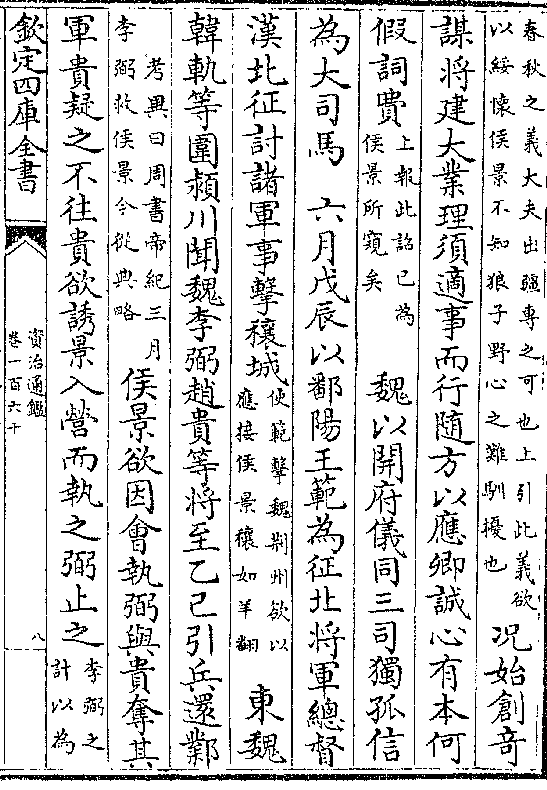 春秋之義大夫出疆專之可也上引此義欲
以綏懷侯景不知狼子野心之難馴擾也
况始創竒
謀将建大業理須適事而行隨方以應卿誠心有本何
假詞費
上報此詔已為
侯景所窺矣
魏以開府儀同三司獨孤信
為大司馬 六月戊辰以鄱陽王範為征北将軍總督
漢北征討諸軍事擊穰城
使範擊魏荆州欲以
應接侯景穰如羊翻
東魏
韓軌等圍潁川聞魏李弼趙貴等将至乙己引兵還鄴
考異曰周書帝紀三月
李弼救侯景今從典略
侯景欲因會執弼與貴奪其
軍貴疑之不往貴欲誘景入營而執之弼止之
李弼之
計以為
欽定四庫全書
資治通鑑
卷一百六十
八